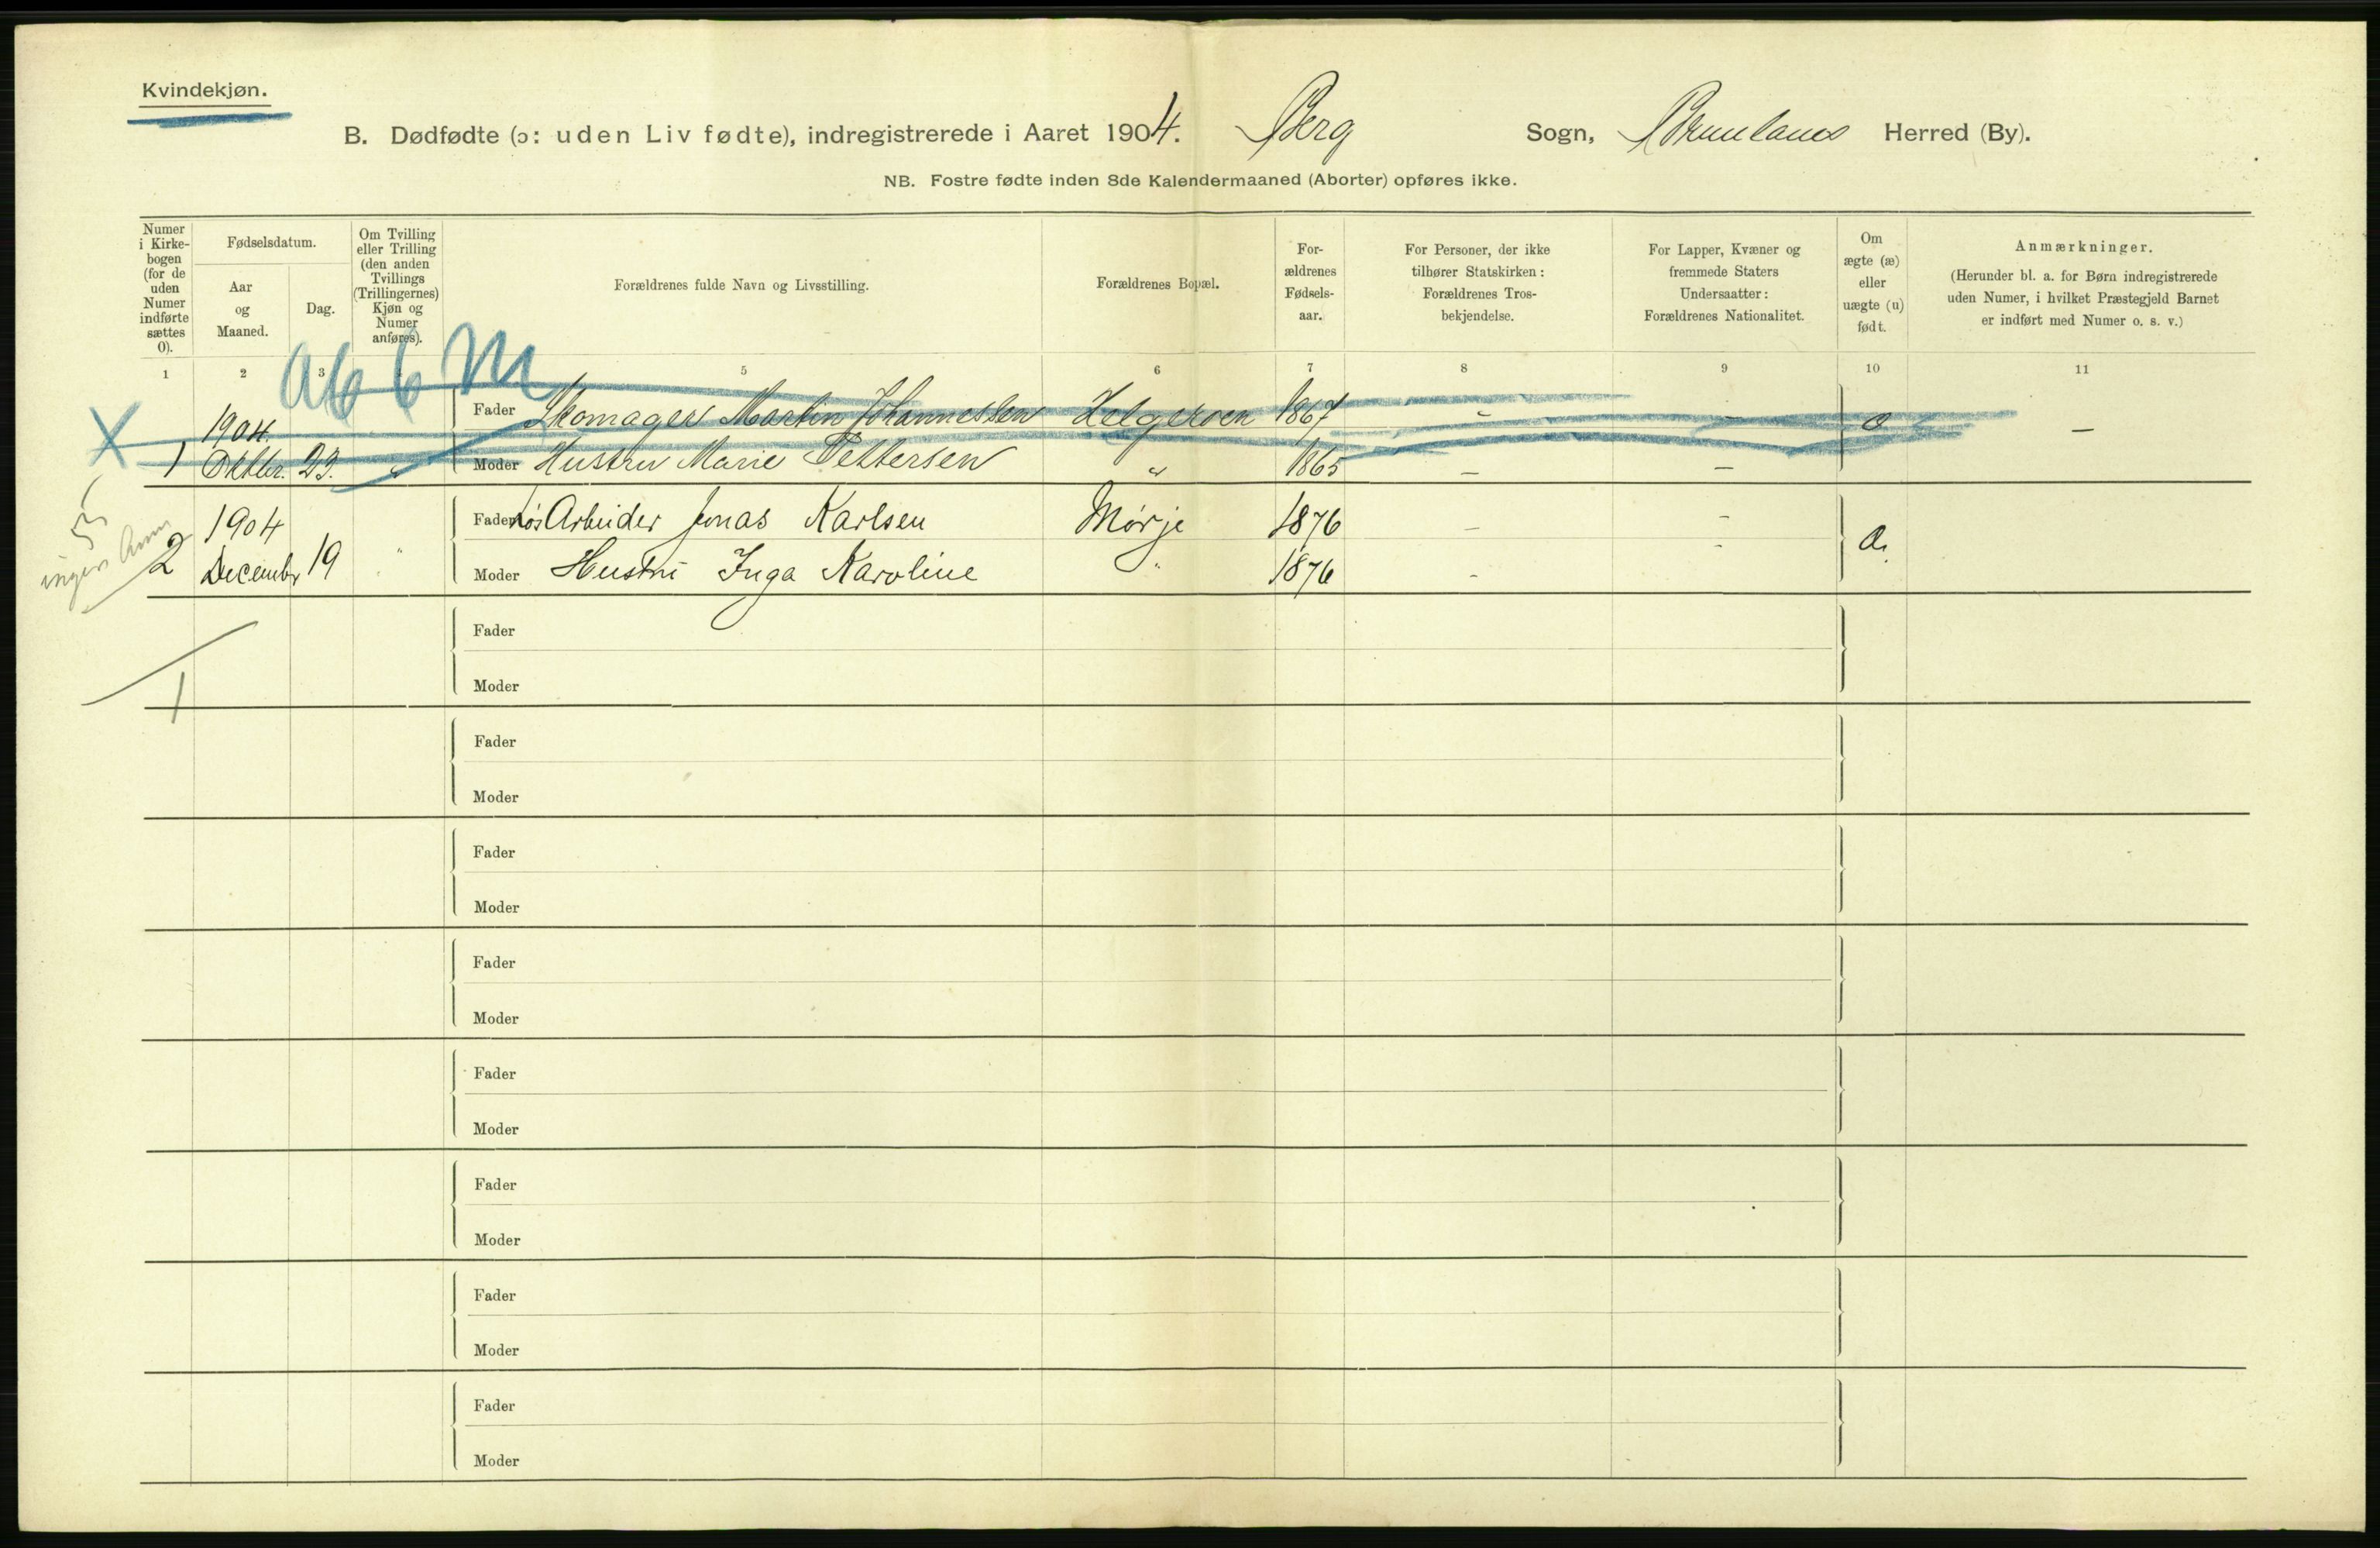 Kvindekjøn.
B. Dødfødte (ɔ: uden Liv fødte), indregistrerede i Aaret 1904. Berg Sogn, Brunlanes Herred (By).
NB. Fostre fødte inden 8de Kalendermaaned (Aborter) opføres ikke.
Numer i Kirke-bogen (for de uden Numer indførte sættes 0).
Fødselsdatum.
Aar og Maaned.
Dag.
Om Tvilling eller Trilling (den anden Tvillings (Trillingernes) Kjøn og Numer anføres).
Forældrenes fulde Navn og Livsstilling.
Forældrenes Bopæl.
For-ældrenes Fødsels-aar.
For Personer, der ikke tilhører Statskirken: Forældrenes Tros-bekjendelse.
For Lapper, Kvæner og fremmede Staters Undersaatter: Forældrenes Nationalitet.
Om ægte (æ) eller uægte (u) født.
Anmærkninger.
(Herunder bl. a. for Børn indregistrerede uden Numer, i hvilket Præstegjeld Barnet er indført med Numer o. s. v.)
1 2 3 5 6 7 8 9 10 11
M
X
1904. Fader Skomager Martin Johannessen Helgeroen 1867 - - -
1 Oktbr. 23. " Moder Hustru Marie Pettersen " 1865 - -
1904 Fader Løs Arbeider Jonas Karlsen Mørje 1876 - -
2 December 19 " Moder Hustru Inga Karoline " 1876 - -
ingen Anm
Fader
Moder
1
Fader
Moder
Fader
Moder
Fader
Moder
Fader
Moder
Fader
Moder
Fader
Moder
Fader
Moder